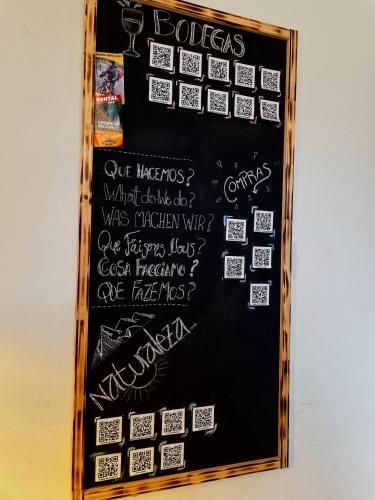 BODEGAS
RENTAL
QUE HACEMOS?
What do We do?
WAS MACHEN WIR?
Que Faisons Nous?
COSA FACCIAMO?
QUE FAZEMOS?
COMPRAS
Naturaleza